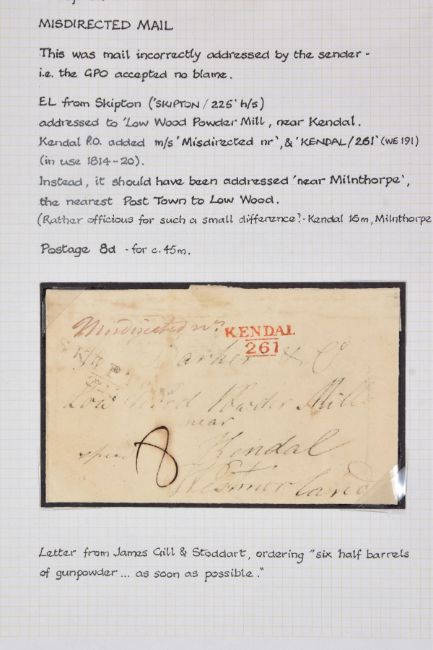 MISDIRECTED MAIL
This was mail incorrectly addressed by the sender -
i.e. the GPO accepted no blame.
EL from Skipton ('SKIPTON / 225' h/s)
addressed to 'Low Wood Powder Mill, near Kendal.
Kendal P.O. added m/s 'Misdirected nr', & 'KENDAL/261' (WE 191)
(in use 1814-20).
Instead, it should have been addressed 'near Milnthorpe',
the nearest Post Town to Low Wood.
(Rather officious for such a small difference! - Kendal 16m, Milnthorpe
Postage 8d - for c. 45m.
Misdirected nr
KENDAL
261
& Co
Low Wood Powder Mill
near
8 Kendal
Westmorland
Letter from James Gill & Stoddart, ordering "six half barrels
of gunpowder ... as soon as possible."